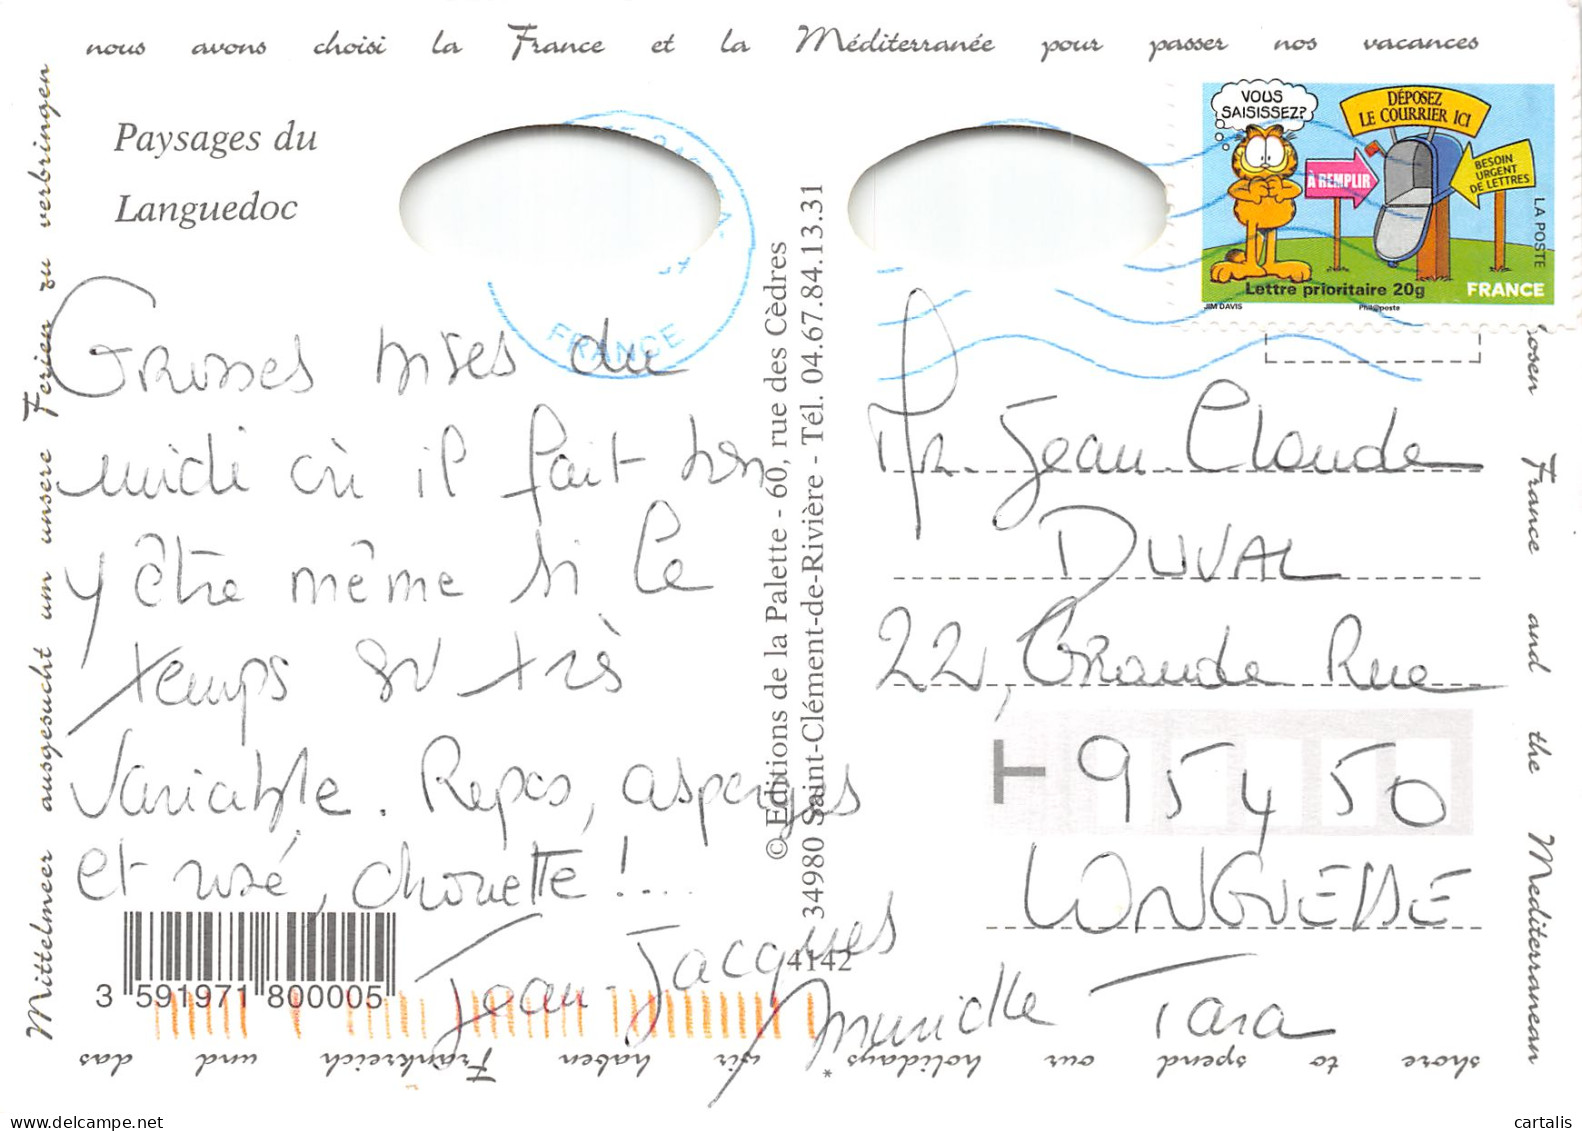 nous avons choisi la France et la Méditerranée pour passer nos vacances
Paysages du
Languedoc
Grosses bises du
midi où il fait bon
y être même si le
temps est très
variable. Repos, asperges
et rosé, chouette !....
Jean-Jacques
Murielle Tara
3 591971 800005
4142
© Editions de la Palette - 60, rue des Cèdres
34980 Saint-Clément-de-Rivière - Tél. 04.67.84.13.31
FRANCE
VOUS
SAISISSEZ?
DÉPOSEZ
LE COURRIER ICI
À REMPLIR
BESOIN
URGENT
DE LETTRES
LA POSTE
Lettre prioritaire 20g
FRANCE
JIM DAVIS
Phil@poste
Mr. Jean Claude
DUVAL
22, Grande Rue
95450
LONGUESSE
France and the Mediterranean
shore to spend our holidays *
wir haben Frankreich und das
Mittelmeer ausgesucht um unsere Ferien zu verbringen
cartalis